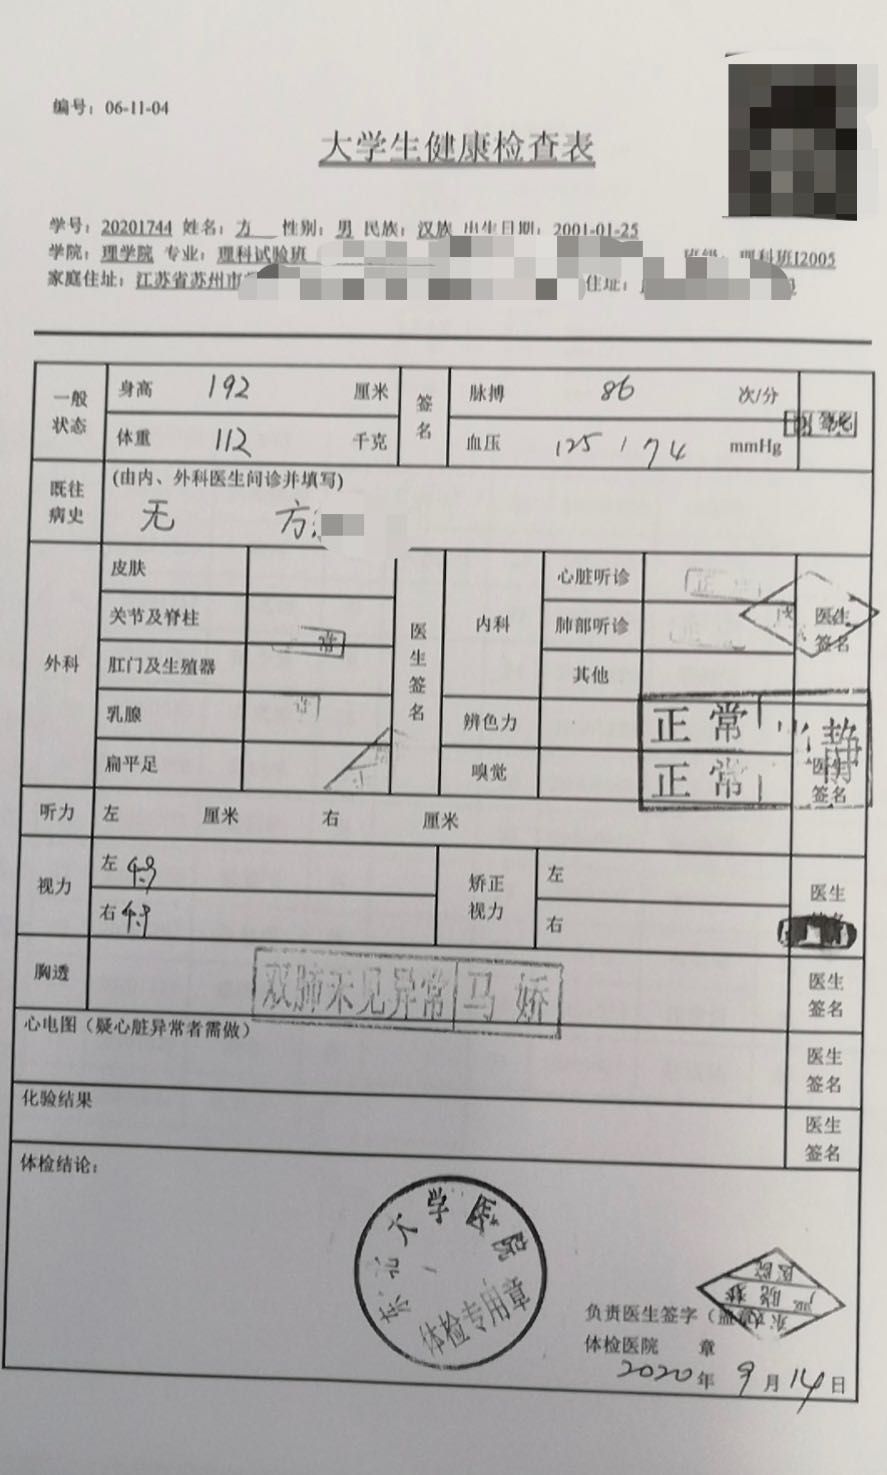 编号：06-11-04
大学生健康检查表
学号：20201744 姓名：方 性别：男 民族：汉族 出生日期：2001-01-25
学院：理学院 专业：理科试验班 班级：理科班I2005
家庭住址：江苏省苏州市 住址：
一般状态 身高 192 厘米 签名 脉搏 86 次/分
体重 112 千克 血压 125 / 74 mmHg 签名
既往病史 (由内、外科医生问诊并填写)
无 方
外科 皮肤 医生签名 内科 心脏听诊 正常 医生签名
关节及脊柱 肺部听诊
肛门及生殖器 常 其他
乳腺 辨色力 正常 医生签名
扁平足 嗅觉 正常
听力 左 厘米 右 厘米
视力 左 4.9 矫正视力 左 医生签名
右 4.9 右
胸透 双肺未见异常 马娇 医生签名
心电图（疑心脏异常者需做） 医生签名
化验结果 医生签名
体检结论：
东北大学医院
体检专用章
医院
负责医生签字（盖章
体检医院 章
2020年 9月 14日